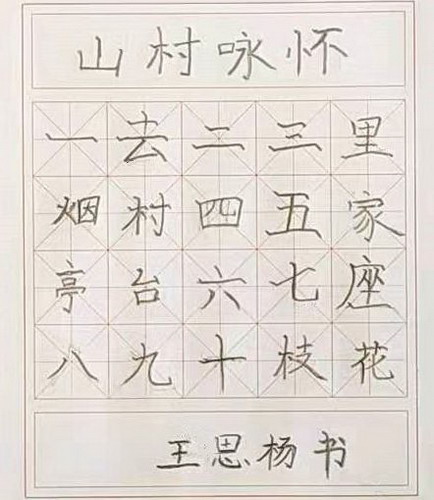 山村咏怀
一去二三里
烟村四五家
亭台六七座
八九十枝花
王思杨书